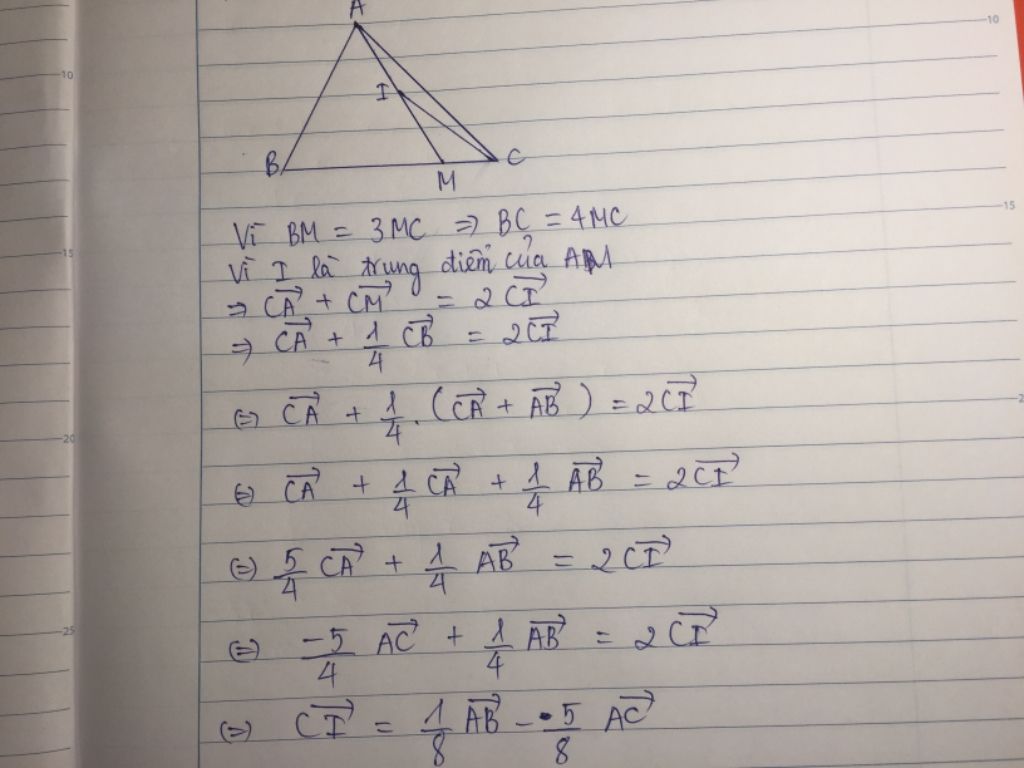 A
I
B
C
M
Vì BM = 3MC ⇒ BC = 4MC
Vì I là trung điểm của AM
⇒ \overrightarrow{CA} + \overrightarrow{CM} = 2\overrightarrow{CI}
⇒ \overrightarrow{CA} + \frac{1}{4} \overrightarrow{CB} = 2\overrightarrow{CI}
⇔ \overrightarrow{CA} + \frac{1}{4}.(\overrightarrow{CA} + \overrightarrow{AB}) = 2\overrightarrow{CI}
⇔ \overrightarrow{CA} + \frac{1}{4} \overrightarrow{CA} + \frac{1}{4} \overrightarrow{AB} = 2\overrightarrow{CI}
⇔ \frac{5}{4} \overrightarrow{CA} + \frac{1}{4} \overrightarrow{AB} = 2\overrightarrow{CI}
⇔ \frac{-5}{4} \overrightarrow{AC} + \frac{1}{4} \overrightarrow{AB} = 2\overrightarrow{CI}
⇔ \overrightarrow{CI} = \frac{1}{8} \overrightarrow{AB} - \frac{5}{8} \overrightarrow{AC}
10
15
20
25
10
15
2